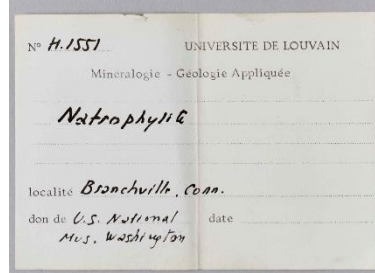 N° H.1551 UNIVERSITE DE LOUVAIN
Mineralogie - Géologie Appliquée
Natrophylite
localité Branchville, Conn.
don de U.S. National date
Mus. Washington